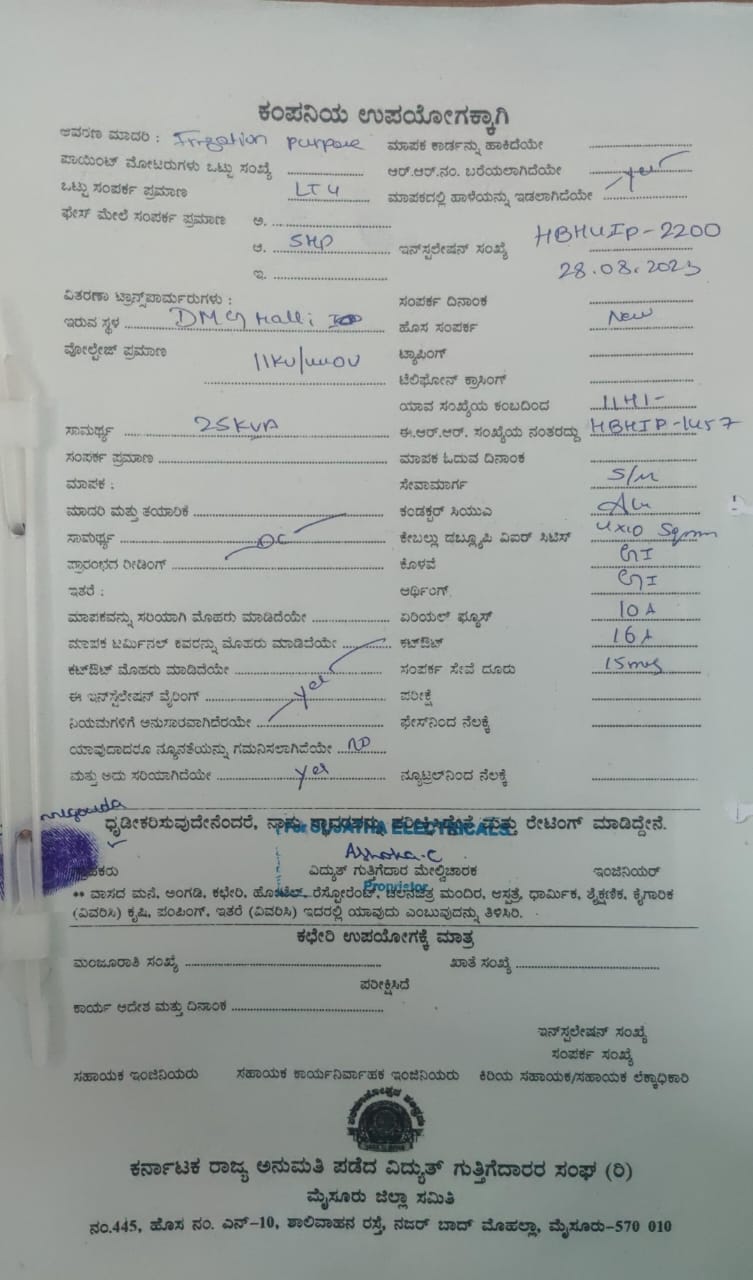 ಕಂಪನಿಯ ಉಪಯೋಗಕ್ಕಾಗಿ
ಆವರಣ ಮಾದರಿ : Irrigation purpose ಮಾಪಕ ಕಾರ್ಡನ್ನು ಹಾಕಿದೆಯೇ
ಪಾಯಿಂಟ್ ಮೋಟರುಗಳು ಒಟ್ಟು ಸಂಖ್ಯೆ ಆರ್.ಆರ್.ನಂ. ಬರೆಯಲಾಗಿದೆಯೇ
ಒಟ್ಟು ಸಂಪರ್ಕ ಪ್ರಮಾಣ LT4 ಮಾಪಕದಲ್ಲಿ ಹಾಳೆಯನ್ನು ಇಡಲಾಗಿದೆಯೇ yes
ಫೇಸ್ ಮೇಲೆ ಸಂಪರ್ಕ ಪ್ರಮಾಣ ಅ.
ಆ. 5HP ಇನ್‌ಸ್ಟಲೇಷನ್ ಸಂಖ್ಯೆ HBHUIP-2200
ಇ. 28.08.2023
ವಿತರಣಾ ಟ್ರಾನ್ಸ್‌ಪಾರ್ಮರುಗಳು : ಸಂಪರ್ಕ ದಿನಾಂಕ
ಇರುವ ಸ್ಥಳ DMG Halli ಹೊಸ ಸಂಪರ್ಕ New
ವೋಲ್ಟೇಜ್ ಪ್ರಮಾಣ 11KV/440V ಟ್ಯಾಪಿಂಗ್
ಟೆಲಿಫೋನ್ ಕ್ರಾಸಿಂಗ್
ಯಾವ ಸಂಖ್ಯೆಯ ಕಂಬದಿಂದ
ಸಾಮರ್ಥ್ಯ 25KVA ಈ.ಆರ್.ಆರ್. ಸಂಖ್ಯೆಯ ನಂತರದ್ದು HBHIP-1457
ಸಂಪರ್ಕ ಪ್ರಮಾಣ ಮಾಪಕ ಓದುವ ದಿನಾಂಕ
ಮಾಪಕ : ಸೇವಾಮಾರ್ಗ S/M
ಮಾದರಿ ಮತ್ತು ತಯಾರಿಕೆ ಕಂಡಕ್ಟರ್ ಸಿಯುಎ Alu
ಸಾಮರ್ಥ್ಯ DC ಕೇಬಲ್ಲು ಡಬ್ಲ್ಯೂಪಿ ವಿಐರ್ ಸಿಟಿಸ್ 4x10 Sqmm
ಪ್ರಾರಂಭದ ರೀಡಿಂಗ್ ಕೊಳವೆ GI
ಇತರೆ : ಆರ್ಥಿಂಗ್ GI
ಮಾಪಕವನ್ನು ಸರಿಯಾಗಿ ಮೊಹರು ಮಾಡಿದೆಯೇ ಏರಿಯಲ್ ಫ್ಯೂಸ್ 10A
ಮಾಪಕ ಟರ್ಮಿನಲ್ ಕವರನ್ನು ಮೊಹರು ಮಾಡಿದೆಯೇ ಕಟ್‌ಔಟ್ 16A
ಕಟ್‌ಔಟ್ ಮೊಹರು ಮಾಡಿದೆಯೇ ಸಂಪರ್ಕ ಸೇವೆ ದೂರು 15mts
ಈ ಇನ್‌ಸ್ಟಲೇಷನ್ ವೈರಿಂಗ್ yes ಪರೀಕ್ಷೆ
ನಿಯಮಗಳಿಗೆ ಅನುಸಾರವಾಗಿದೆರಯೇ ಫೇಸ್‌ನಿಂದ ನೆಲಕ್ಕೆ
ಯಾವುದಾದರೂ ನ್ಯೂನತೆಯನ್ನು ಗಮನಿಸಲಾಗಿದೆಯೇ NO
ಮತ್ತು ಅದು ಸರಿಯಾಗಿದೆಯೇ yes ನ್ಯೂಟ್ರಲ್‌ನಿಂದ ನೆಲಕ್ಕೆ
ಧೃಡೀಕರಿಸುವುದೇನೆಂದರೆ, ನಾನು ಸ್ಥಾವರವನ್ನು ಪರೀಕ್ಷಿಸಿದ್ದೇನೆ ಮತ್ತು ರೇಟಿಂಗ್ ಮಾಡಿದ್ದೇನೆ.
For SUJATHA ELECTRICALS
Ashoka.C
ವಿದ್ಯುತ್ ಗುತ್ತಿಗೆದಾರ ಮೇಲ್ವಿಚಾರಕ ಇಂಜಿನಿಯರ್
Proprietor
** ವಾಸದ ಮನೆ, ಅಂಗಡಿ, ಕಛೇರಿ, ಹೊಟೆಲ್, ರೆಸ್ಟೋರೆಂಟ್, ಚಲನಚಿತ್ರ ಮಂದಿರ, ಆಸ್ಪತ್ರೆ, ಧಾರ್ಮಿಕ, ಶೈಕ್ಷಣಿಕ, ಕೈಗಾರಿಕ
(ವಿವರಿಸಿ) ಕೃಷಿ, ಪಂಪಿಂಗ್, ಇತರೆ (ವಿವರಿಸಿ) ಇದರಲ್ಲಿ ಯಾವುದು ಎಂಬುವುದನ್ನು ತಿಳಿಸಿರಿ.
ಕಛೇರಿ ಉಪಯೋಗಕ್ಕೆ ಮಾತ್ರ
ಮಂಜೂರಾತಿ ಸಂಖ್ಯೆ ಖಾತೆ ಸಂಖ್ಯೆ
ಪರೀಕ್ಷಿಸಿದೆ
ಕಾರ್ಯ ಆದೇಶ ಮತ್ತು ದಿನಾಂಕ
ಇನ್‌ಸ್ಟಲೇಷನ್ ಸಂಖ್ಯೆ
ಸಂಪರ್ಕ ಸಂಖ್ಯೆ
ಸಹಾಯಕ ಇಂಜಿನಿಯರು ಸಹಾಯಕ ಕಾರ್ಯನಿರ್ವಾಹಕ ಇಂಜಿನಿಯರು ಕಿರಿಯ ಸಹಾಯಕ/ಸಹಾಯಕ ಲೆಕ್ಕಾಧಿಕಾರಿ
ಕರ್ನಾಟಕ ರಾಜ್ಯ ಅನುಮತಿ ಪಡೆದ ವಿದ್ಯುತ್ ಗುತ್ತಿಗೆದಾರರ ಸಂಘ (ರಿ)
ಮೈಸೂರು ಜಿಲ್ಲಾ ಸಮಿತಿ
ನಂ.445, ಹೊಸ ನಂ. ಎನ್-10, ಶಾಲಿವಾಹನ ರಸ್ತೆ, ನಜರ್ ಬಾದ್ ಮೊಹಲ್ಲಾ, ಮೈಸೂರು-570 010